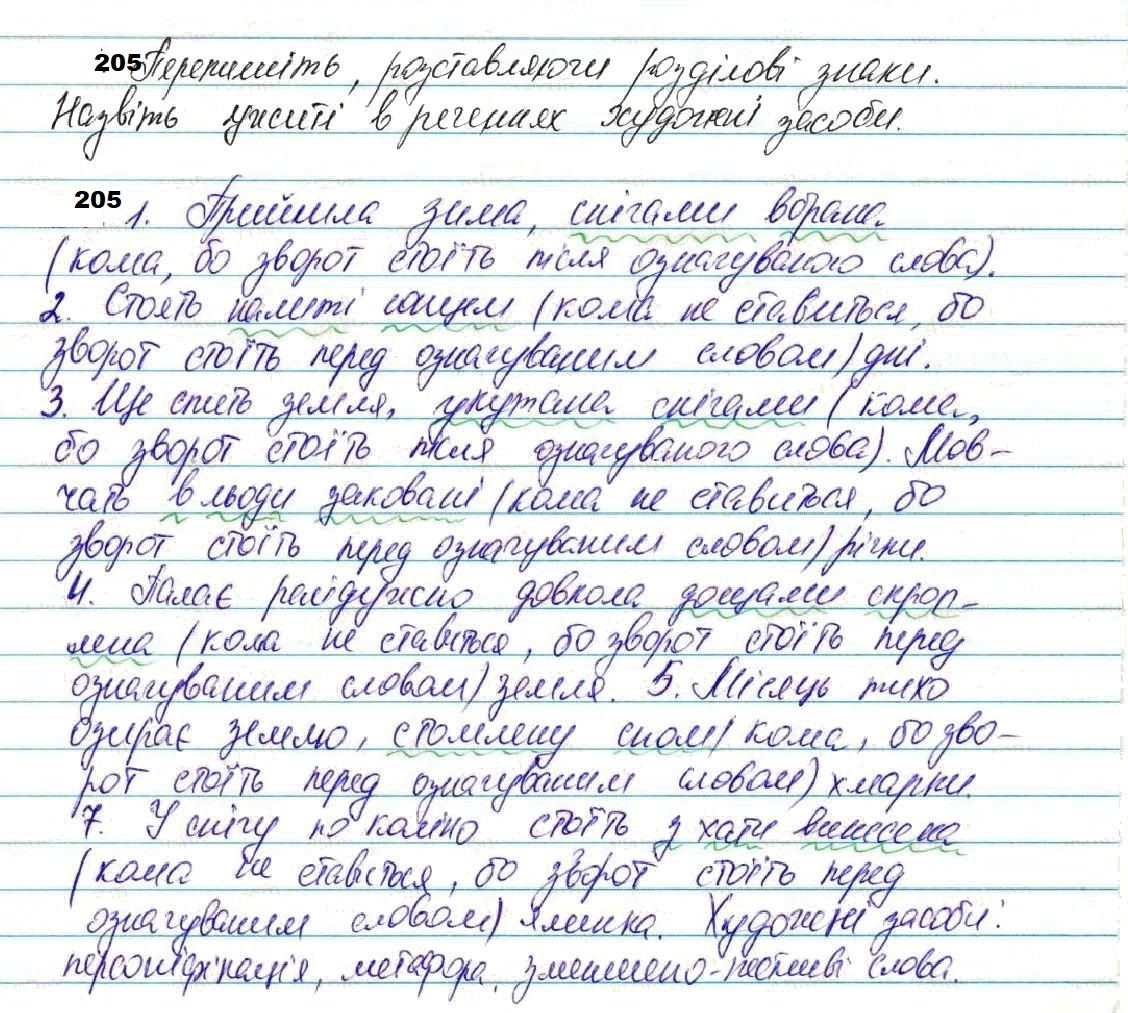 205 Перепишіть, розставляючи розділові знаки.
Назвіть ужиті в реченнях художні засоби.
205 1. Прийшла зима, снігами вбрана
(кома, бо зворот стоїть після означуваного слова).
2. Стоять налиті сонцем (кома не ставиться, бо
зворот стоїть перед означуваним словом) дні.
3. Ще спить земля, укутана снігами (кома,
бо зворот стоїть після означуваного слова). Мов-
чать в льоди заковані (кома не ставиться, бо
зворот стоїть перед означуваним словом) річки.
4. Палає райдужно довкола дощами скроп-
лена (кома не ставиться, бо зворот стоїть перед
означуваним словом) земля. 5. Місяць тихо
озирає землю, стомлену сном (кома, бо зво-
рот стоїть перед означуваним словом) хмарки.
7. У снігу по коліно стоїть з хати винесена
(кома не ставиться, бо зворот стоїть перед
означуваним словом) ялинка. Художні засоби:
персоніфікація, метафора, зменшено-пестливі слова.